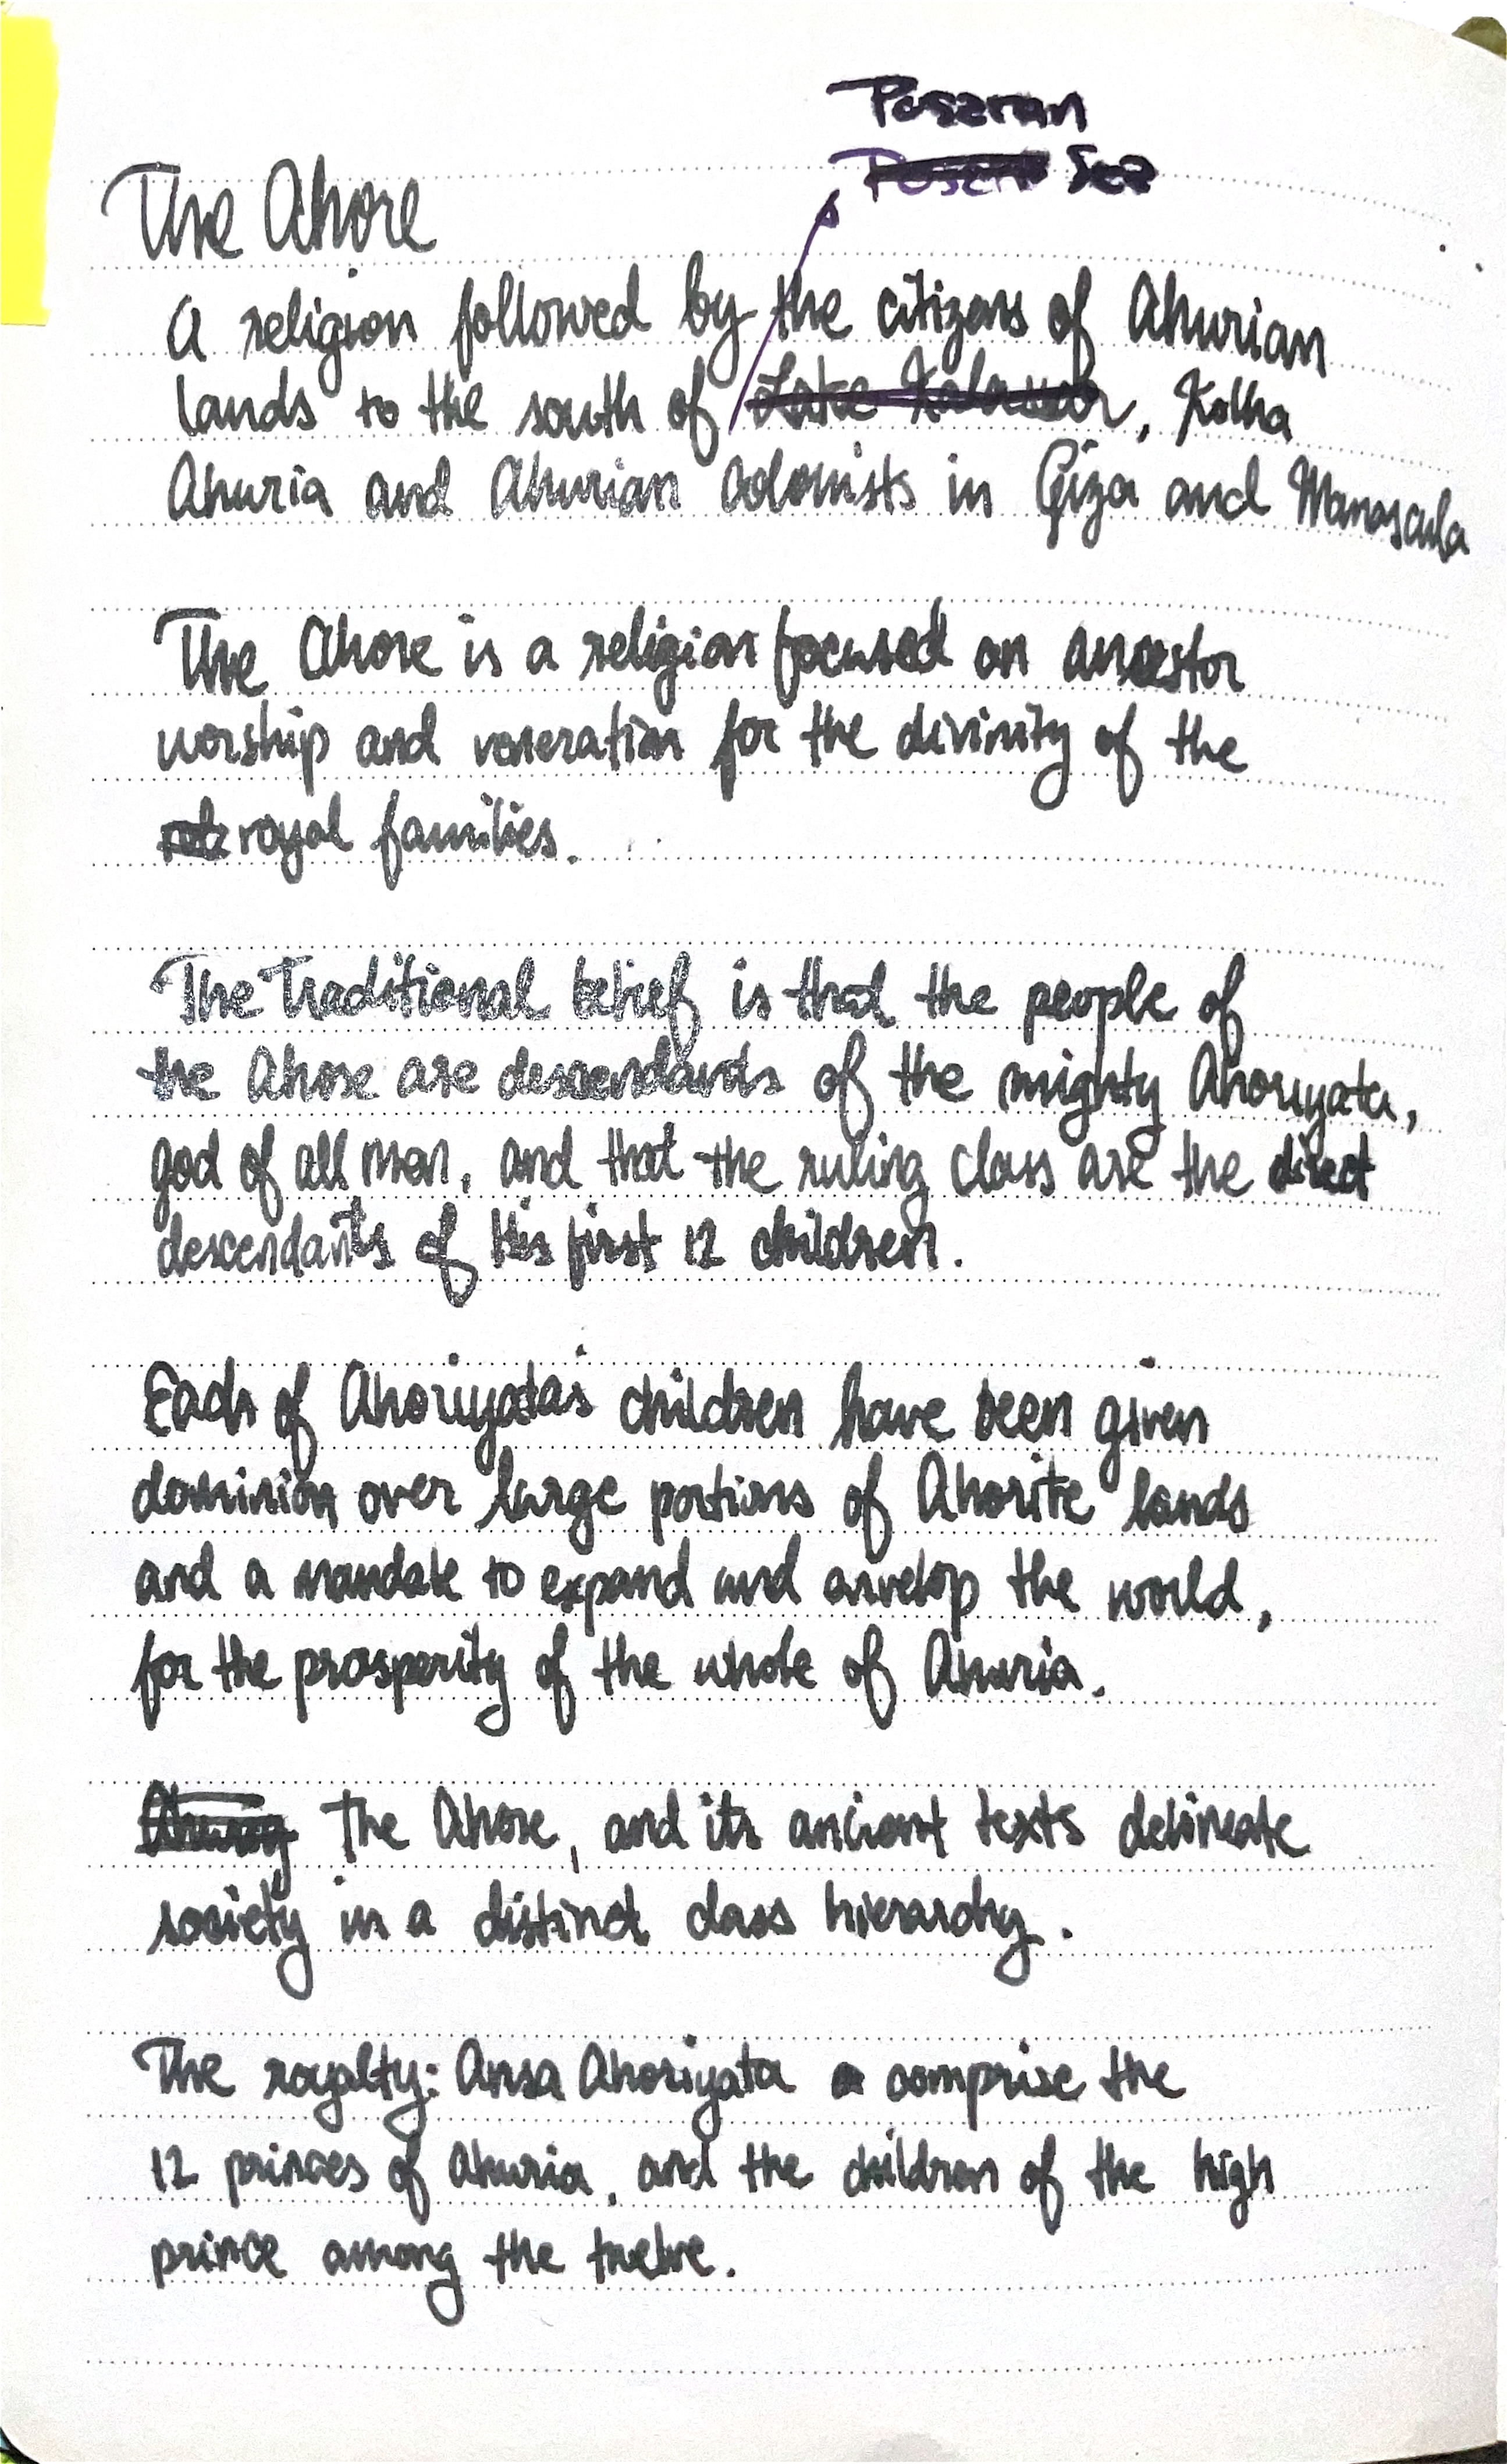 Peseran
Sea
The Ahore
A religion followed by the citizens of Ahurian
lands to the south of Lake , Kolha
Ahuria and Ahurian colonists in Giza and Manasada
The Ahore is a religion focused on ancestor
worship and veneration for the divinity of the
royal families.
The Traditional belief is that the people of
the Ahore are descendants of the mighty Ahoriyata,
god of all men, and that the ruling class are the direct
descendants of His first 12 children.
Each of Ahoriyata's children have been given
dominion over large portions of Ahorite lands
and a mandate to expand and envelop the world,
for the prosperity of the whole of Ahuria.
The Ahore, and its ancient texts delineate
society in a distinct class hierarchy.
The royalty: Ansa Ahoriyata comprise the
12 princes of Ahuria, and the children of the high
prince among the twelve.